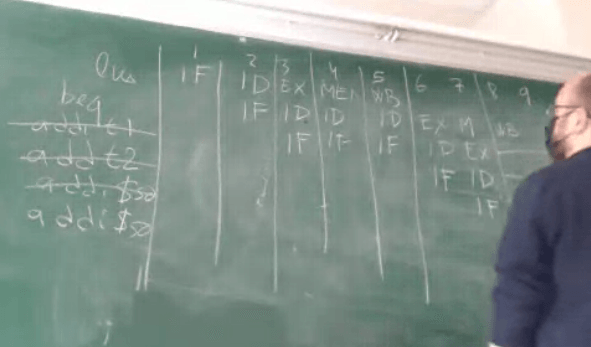 1 2 3 4 5 6 7 8 9
IF ID EX MEM WB
beq IF ID ID ID EX M WB
addi t1 IF IF IF ID EX
add t2 IF ID
addi $s0 IF
addi $s0